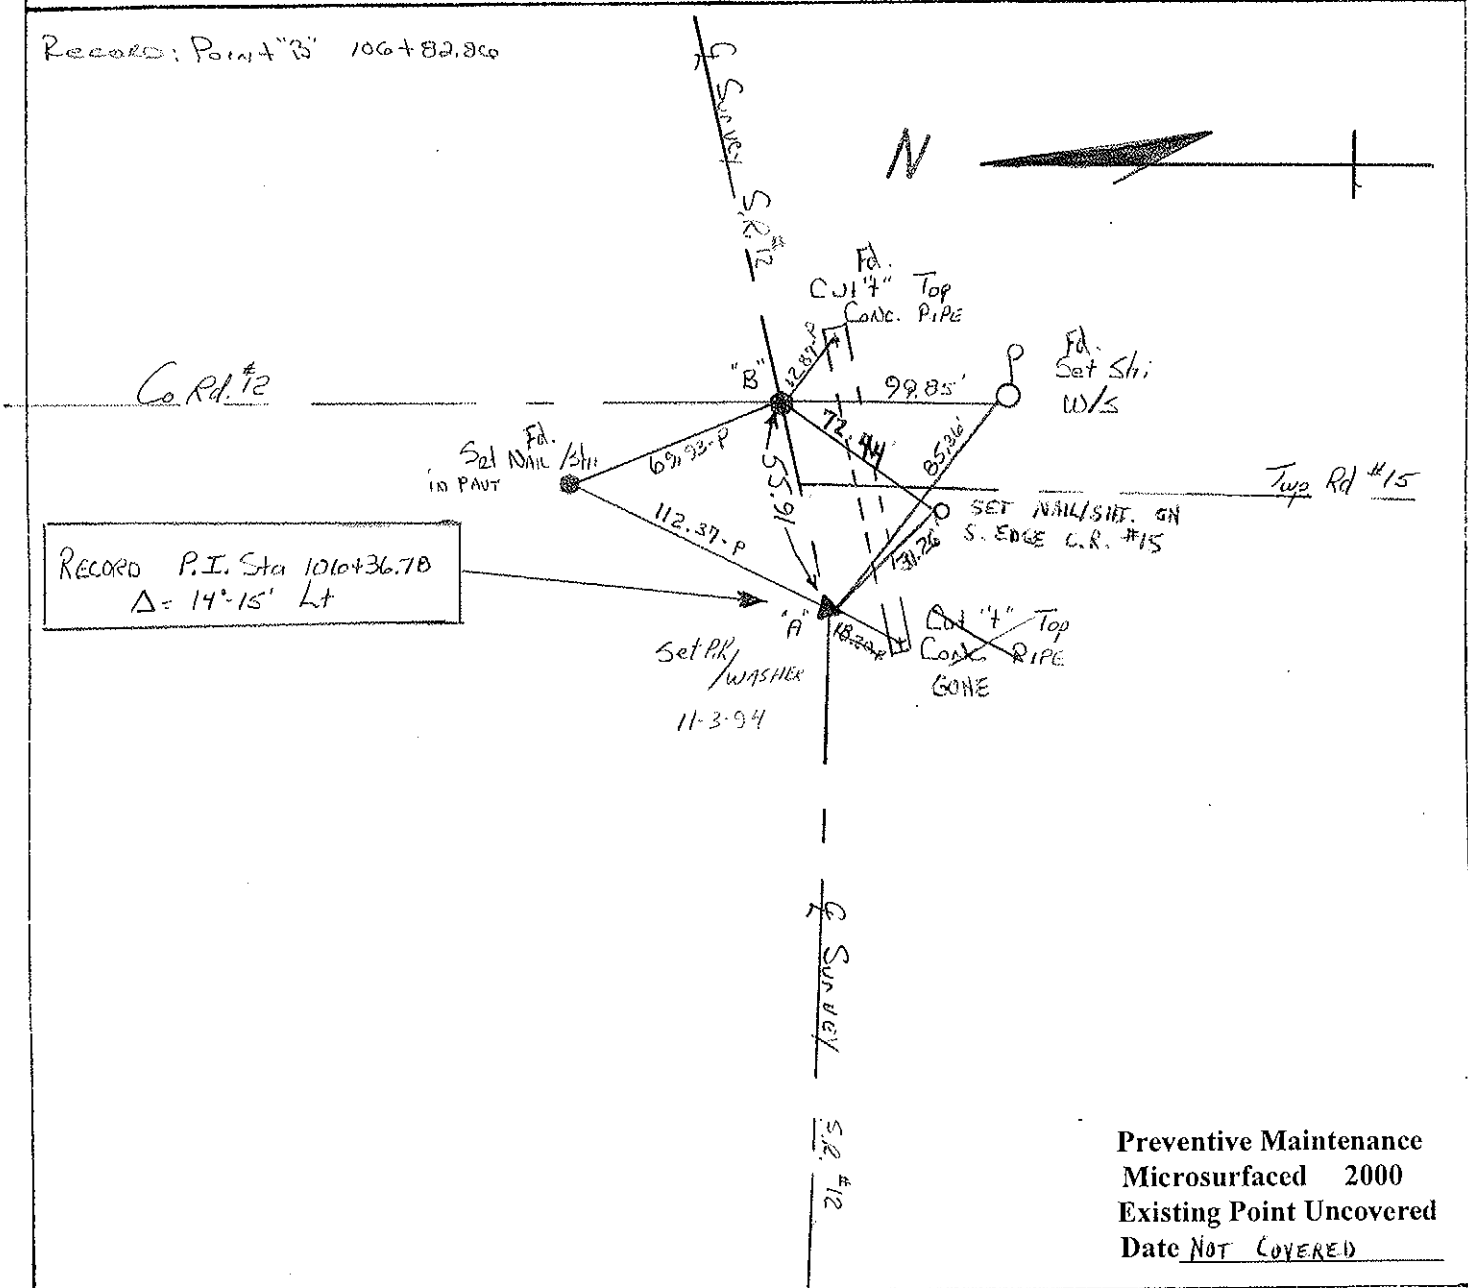 Record: Point "B" 106+82.86
℄ Survey S.R. #12
N
Fd.
Cut "+" Top
Conc. PIPE
12.87-P
"B"
Co Rd. #12
99.85'
Fd.
Set Shi:
W/S
Fd.
Set NAIL/Shi:
in PAVT
69.93-P
72.44
85.36'
55.91
Twp Rd #15
SET NAIL/SHI. ON
S. EDGE C.R. #15
112.37-P
31.26'
RECORD P.I. Sta 106+36.78
Δ= 14°-15' Lt
"A"
18.20-P
Cut "+" Top
Conc. PIPE
GONE
Set P.K./
WASHER
11-3-94
℄ Survey S.R. #12
Preventive Maintenance
Microsurfaced 2000
Existing Point Uncovered
Date NOT COVERED